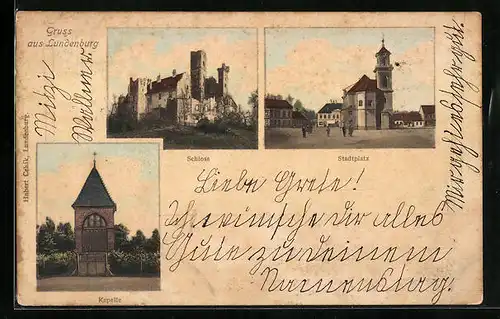 Gruss
aus Lundenburg
Mitzi
Wallner
Schloss
Stadtplatz
Kapelle
Hubert Lundenburg.
Liebe Grete!
Ich wünsche Dir alles
Gute zu deinem
Namenstag.